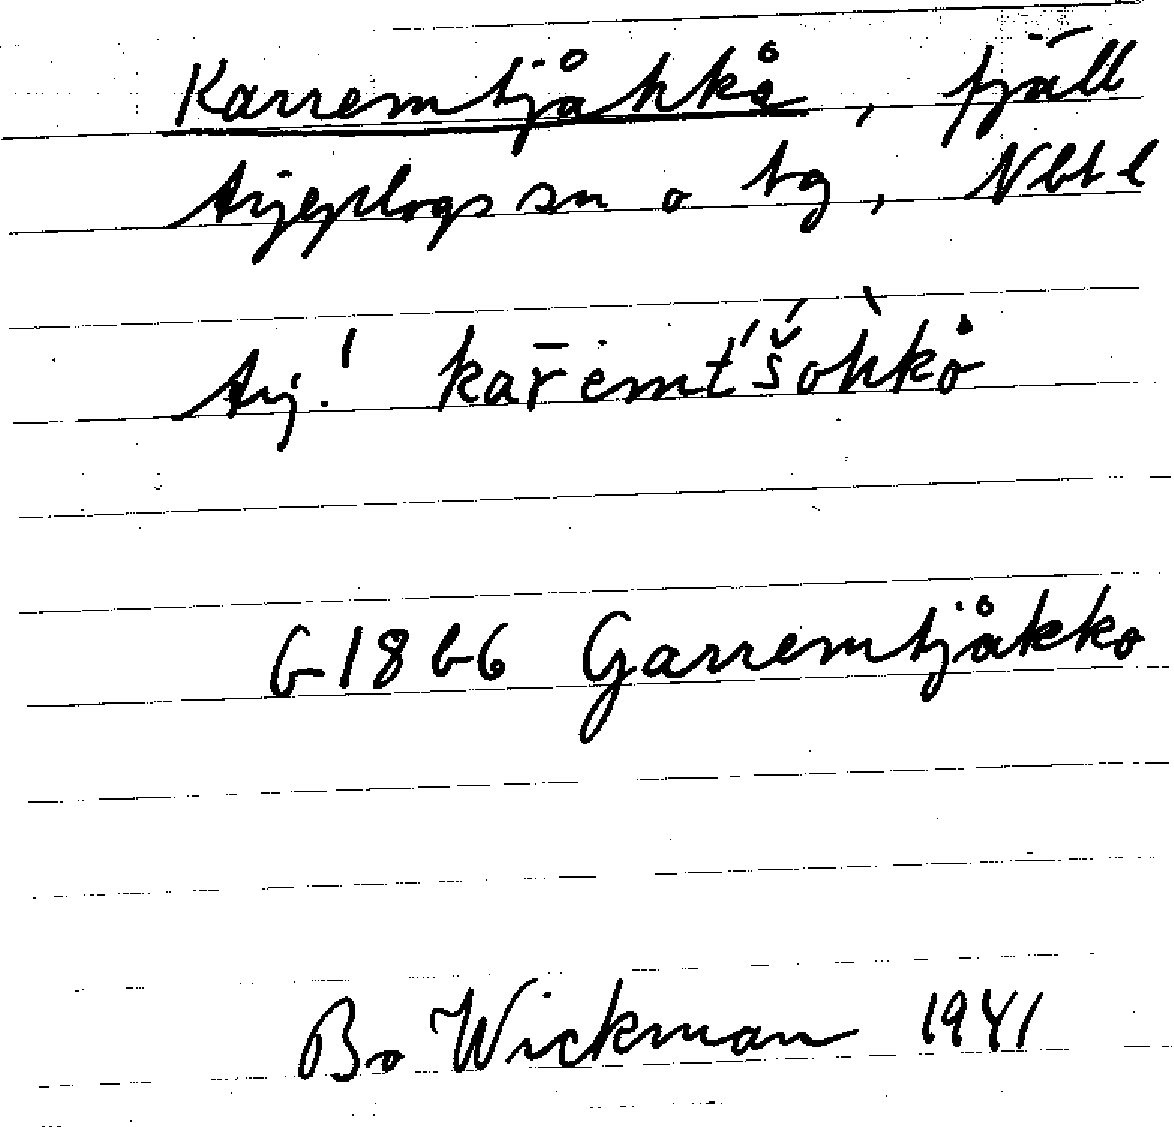 Karremtjåhkå, fjäll
Arjeplogs sn o tg, Nbt l
Arj.! kar̄ėmt́š́òhkå
G 18 b6 Garremtjåkko
Bo Wickman 1941